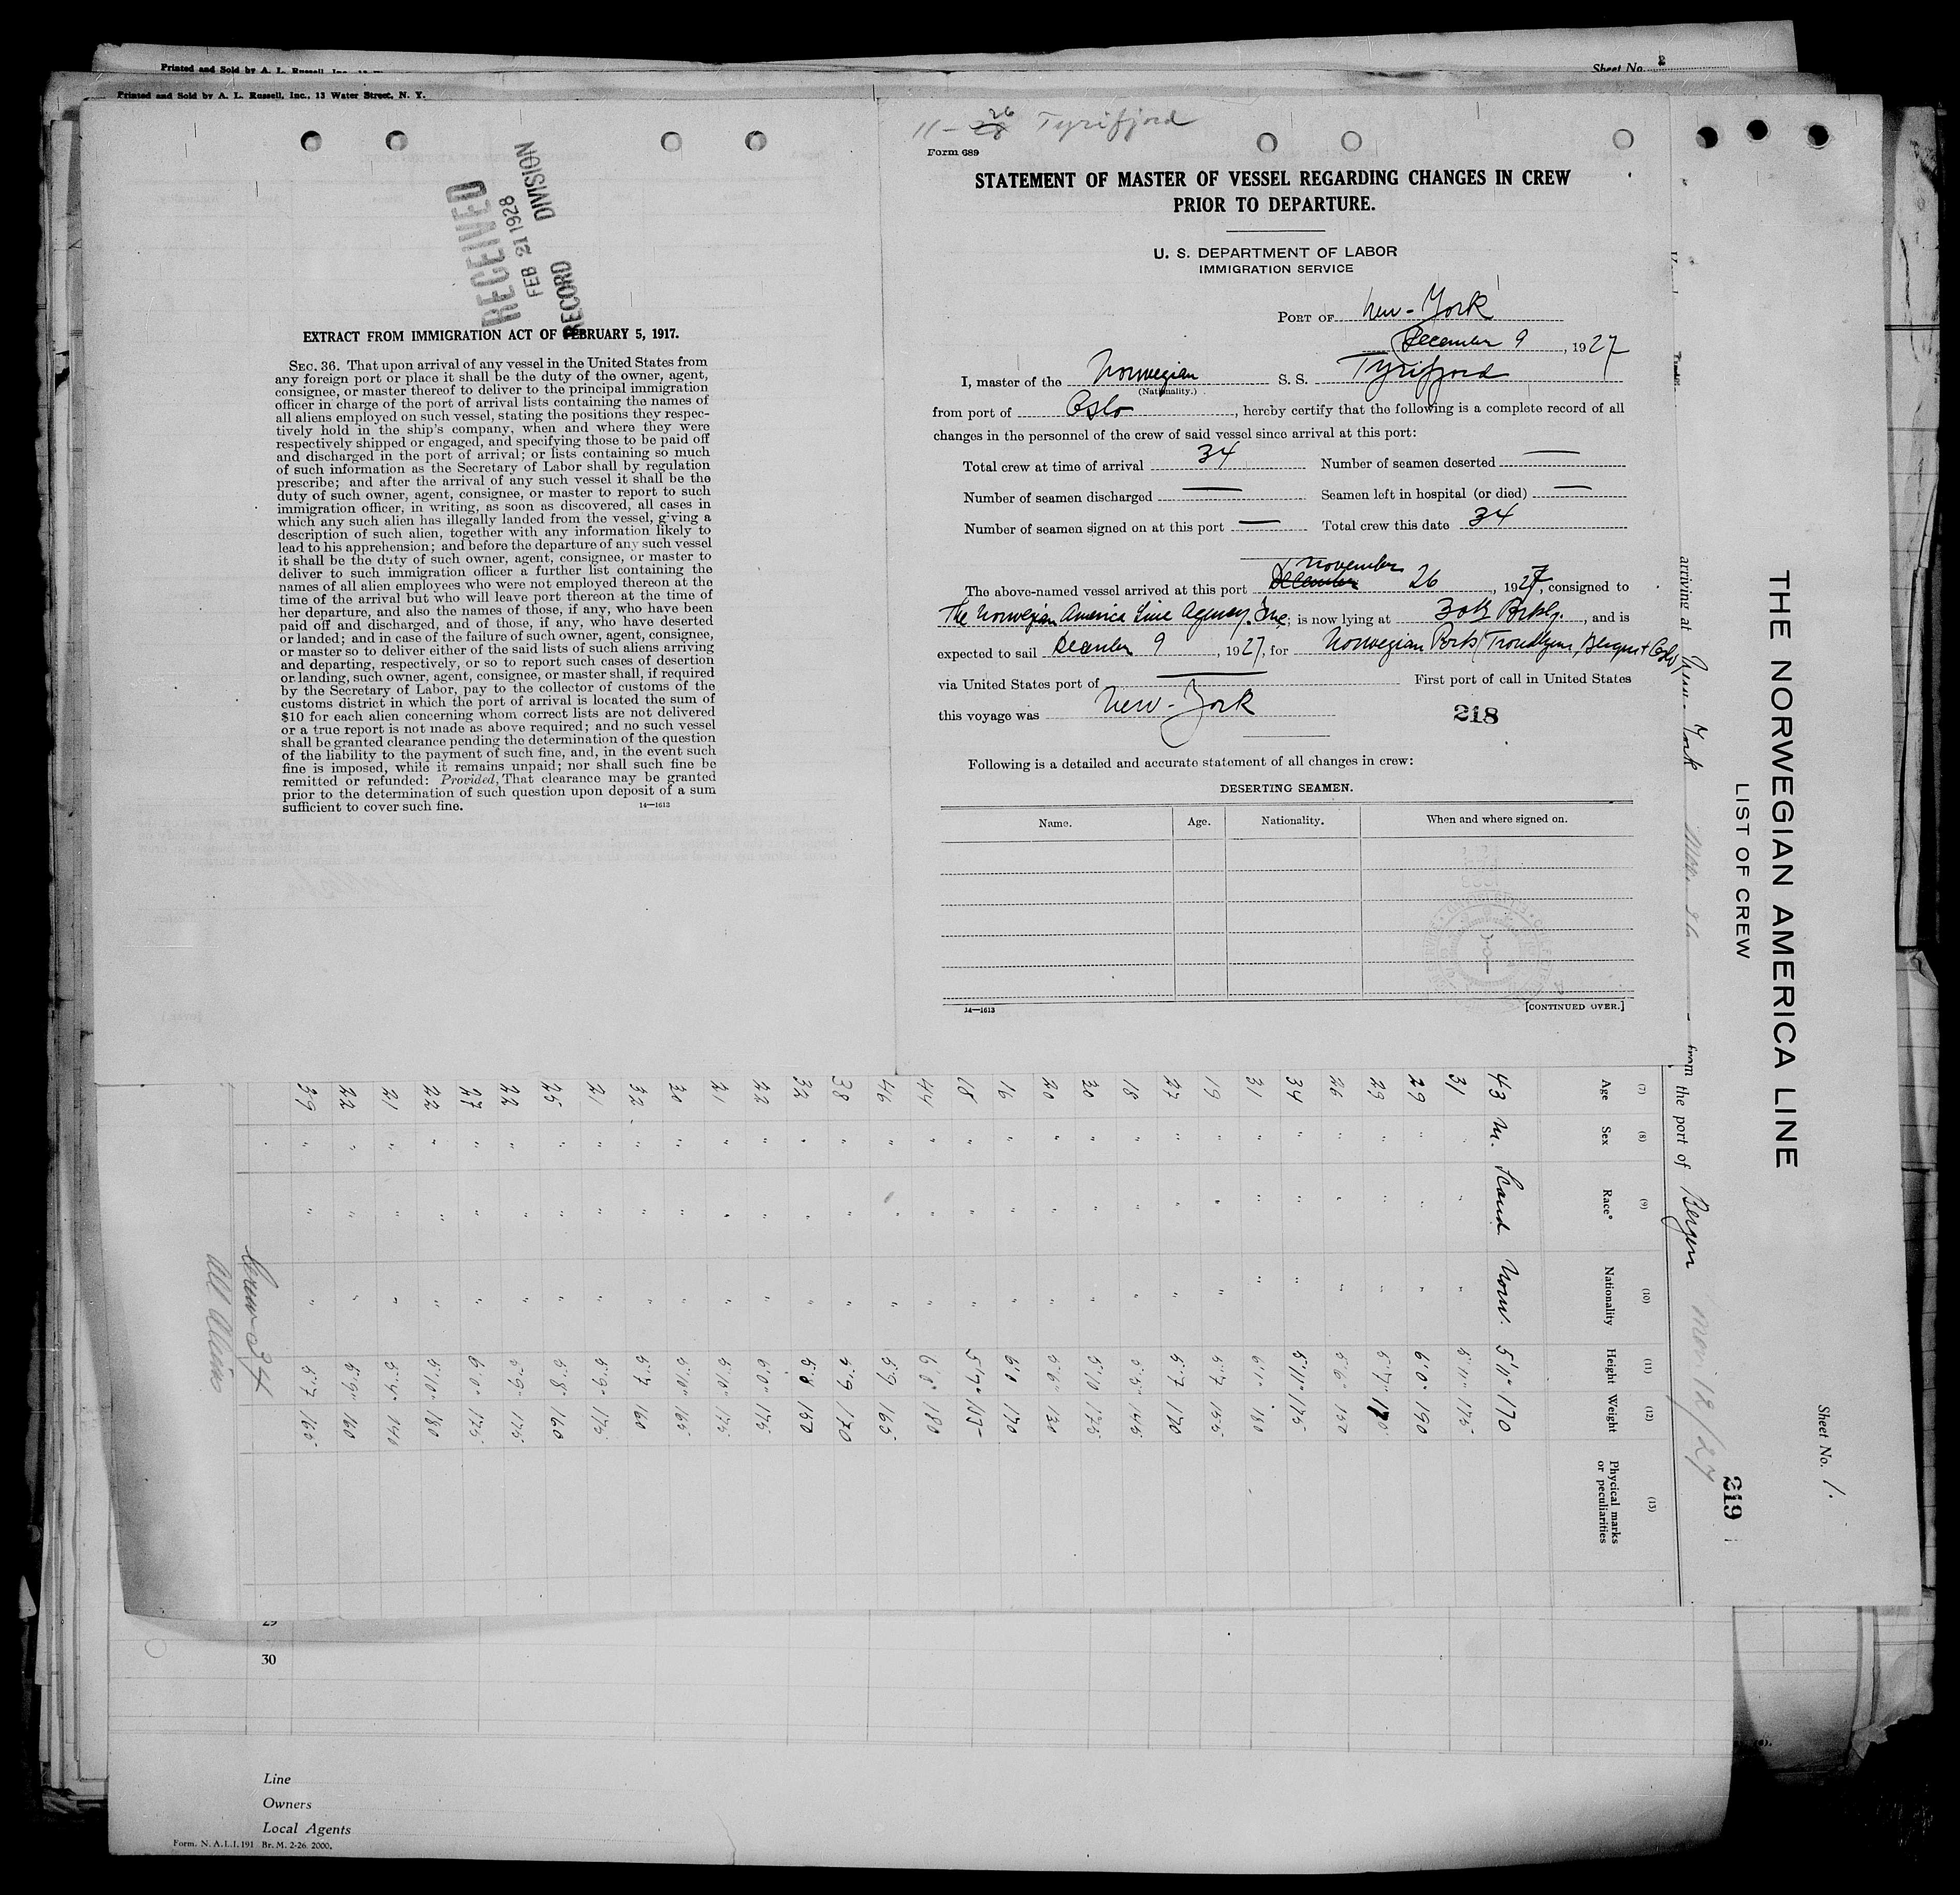 Printed and Sold by A. L. Russell, Inc.,
Sheet No. 2
Printed and Sold by A. L. Russell, Inc., 13 Water Street, N. Y.
RECEIVED
FEB 21 1928
RECORD DIVISION
EXTRACT FROM IMMIGRATION ACT OF FEBRUARY 5, 1917.
SEC. 36. That upon arrival of any vessel in the United States from
any foreign port or place it shall be the duty of the owner, agent,
consignee, or master thereof to deliver to the principal immigration
officer in charge of the port of arrival lists containing the names of
all aliens employed on such vessel, stating the positions they respec-
tively hold in the ship's company, when and where they were
respectively shipped or engaged, and specifying those to be paid off
and discharged in the port of arrival; or lists containing so much
of such information as the Secretary of Labor shall by regulation
prescribe; and after the arrival of any such vessel it shall be the
duty of such owner, agent, consignee, or master to report to such
immigration officer, in writing, as soon as discovered, all cases in
which any such alien has illegally landed from the vessel, giving a
description of such alien, together with any information likely to
lead to his apprehension; and before the departure of any such vessel
it shall be the duty of such owner, agent, consignee, or master to
deliver to such immigration officer a further list containing the
names of all alien employees who were not employed thereon at the
time of the arrival but who will leave port thereon at the time of
her departure, and also the names of those, if any, who have been
paid off and discharged, and of those, if any, who have deserted
or landed; and in case of the failure of such owner, agent, consignee,
or master so to deliver either of the said lists of such aliens arriving
and departing, respectively, or so to report such cases of desertion
or landing, such owner, agent, consignee, or master shall, if required
by the Secretary of Labor, pay to the collector of customs of the
customs district in which the port of arrival is located the sum of
$10 for each alien concerning whom correct lists are not delivered
or a true report is not made as above required; and no such vessel
shall be granted clearance pending the determination of the question
of the liability to the payment of such fine, and, in the event such
fine is imposed, while it remains unpaid; nor shall such fine be
remitted or refunded: Provided, That clearance may be granted
prior to the determination of such question upon deposit of a sum
sufficient to cover such fine.
14—1613
11 - 28 26 Tyrifjord
Form 689
STATEMENT OF MASTER OF VESSEL REGARDING CHANGES IN CREW
PRIOR TO DEPARTURE.
U. S. DEPARTMENT OF LABOR
IMMIGRATION SERVICE
PORT OF New-York
December 9, 1927
I, master of the Norwegian S. S. Tyrifjord
(Nationality.)
from port of Oslo, hereby certify that the following is a complete record of all
changes in the personnel of the crew of said vessel since arrival at this port:
Total crew at time of arrival 34 Number of seamen deserted —
Number of seamen discharged — Seamen left in hospital (or died) —
Number of seamen signed on at this port — Total crew this date 34
November
The above-named vessel arrived at this port December 26, 1927, consigned to
The Norwegian America Line Agency. Inc; is now lying at 30th Bklg., and is
expected to sail December 9, 1927, for Norwegian Ports (Trondhjem, Bergen + Oslo)
via United States port of — First port of call in United States
this voyage was New-York
218
Following is a detailed and accurate statement of all changes in crew:
DESERTING SEAMEN.
Name. Age. Nationality. When and where signed on.
14—1613
[CONTINUED OVER.]
THE NORWEGIAN AMERICA LINE
LIST OF CREW
Sheet No. 1.
219
arriving at New York Nov. 26 from the port of Bergen
(7) (8) (9) (10) (11) (12) (13)
Age Sex Race* Nationality Height Weight Physical marks or peculiarities
43 M. Scand. Norw. 5'11" 170
31 " " " 5'11" 175
29 " " " 6'0" 190
23 " " " 5'7"
26 " " " 5'6" 150
34 " " " 5'11" 175
31 " " " 6'1" 180
19 " " " 5'7 155
27 " " " 5'7 170
18 " " " 5'5" 145
30 " " " 5'10 175
20 " " " 5'6" 130
16 " " " 6'0 170
18 " " " 5'9" 155
44 " " " 6'0" 180
46 " " " 5'9 165
38 " " " 5'9 170
32 " " " 5'8 150
22 " " " 6'0" 175
21 " " " 5'10" 175
20 " " " 5'10" 165
32 " " " 5'7 160
21 " " " 5'9" 175
25 " " " 5'8" 160
22 " " " 5'9" 175
27 " " " 6'0" 175
22 " " " 5'10" 180
21 " " " 5'4" 140
22 " " " 5'9" 160
39 " " " 5'7 165
Crew 34
All Aliens
29
30
Line
Owners
Local Agents
Form. N. A. L. I. 191 Br. M. 2-26. 2000.